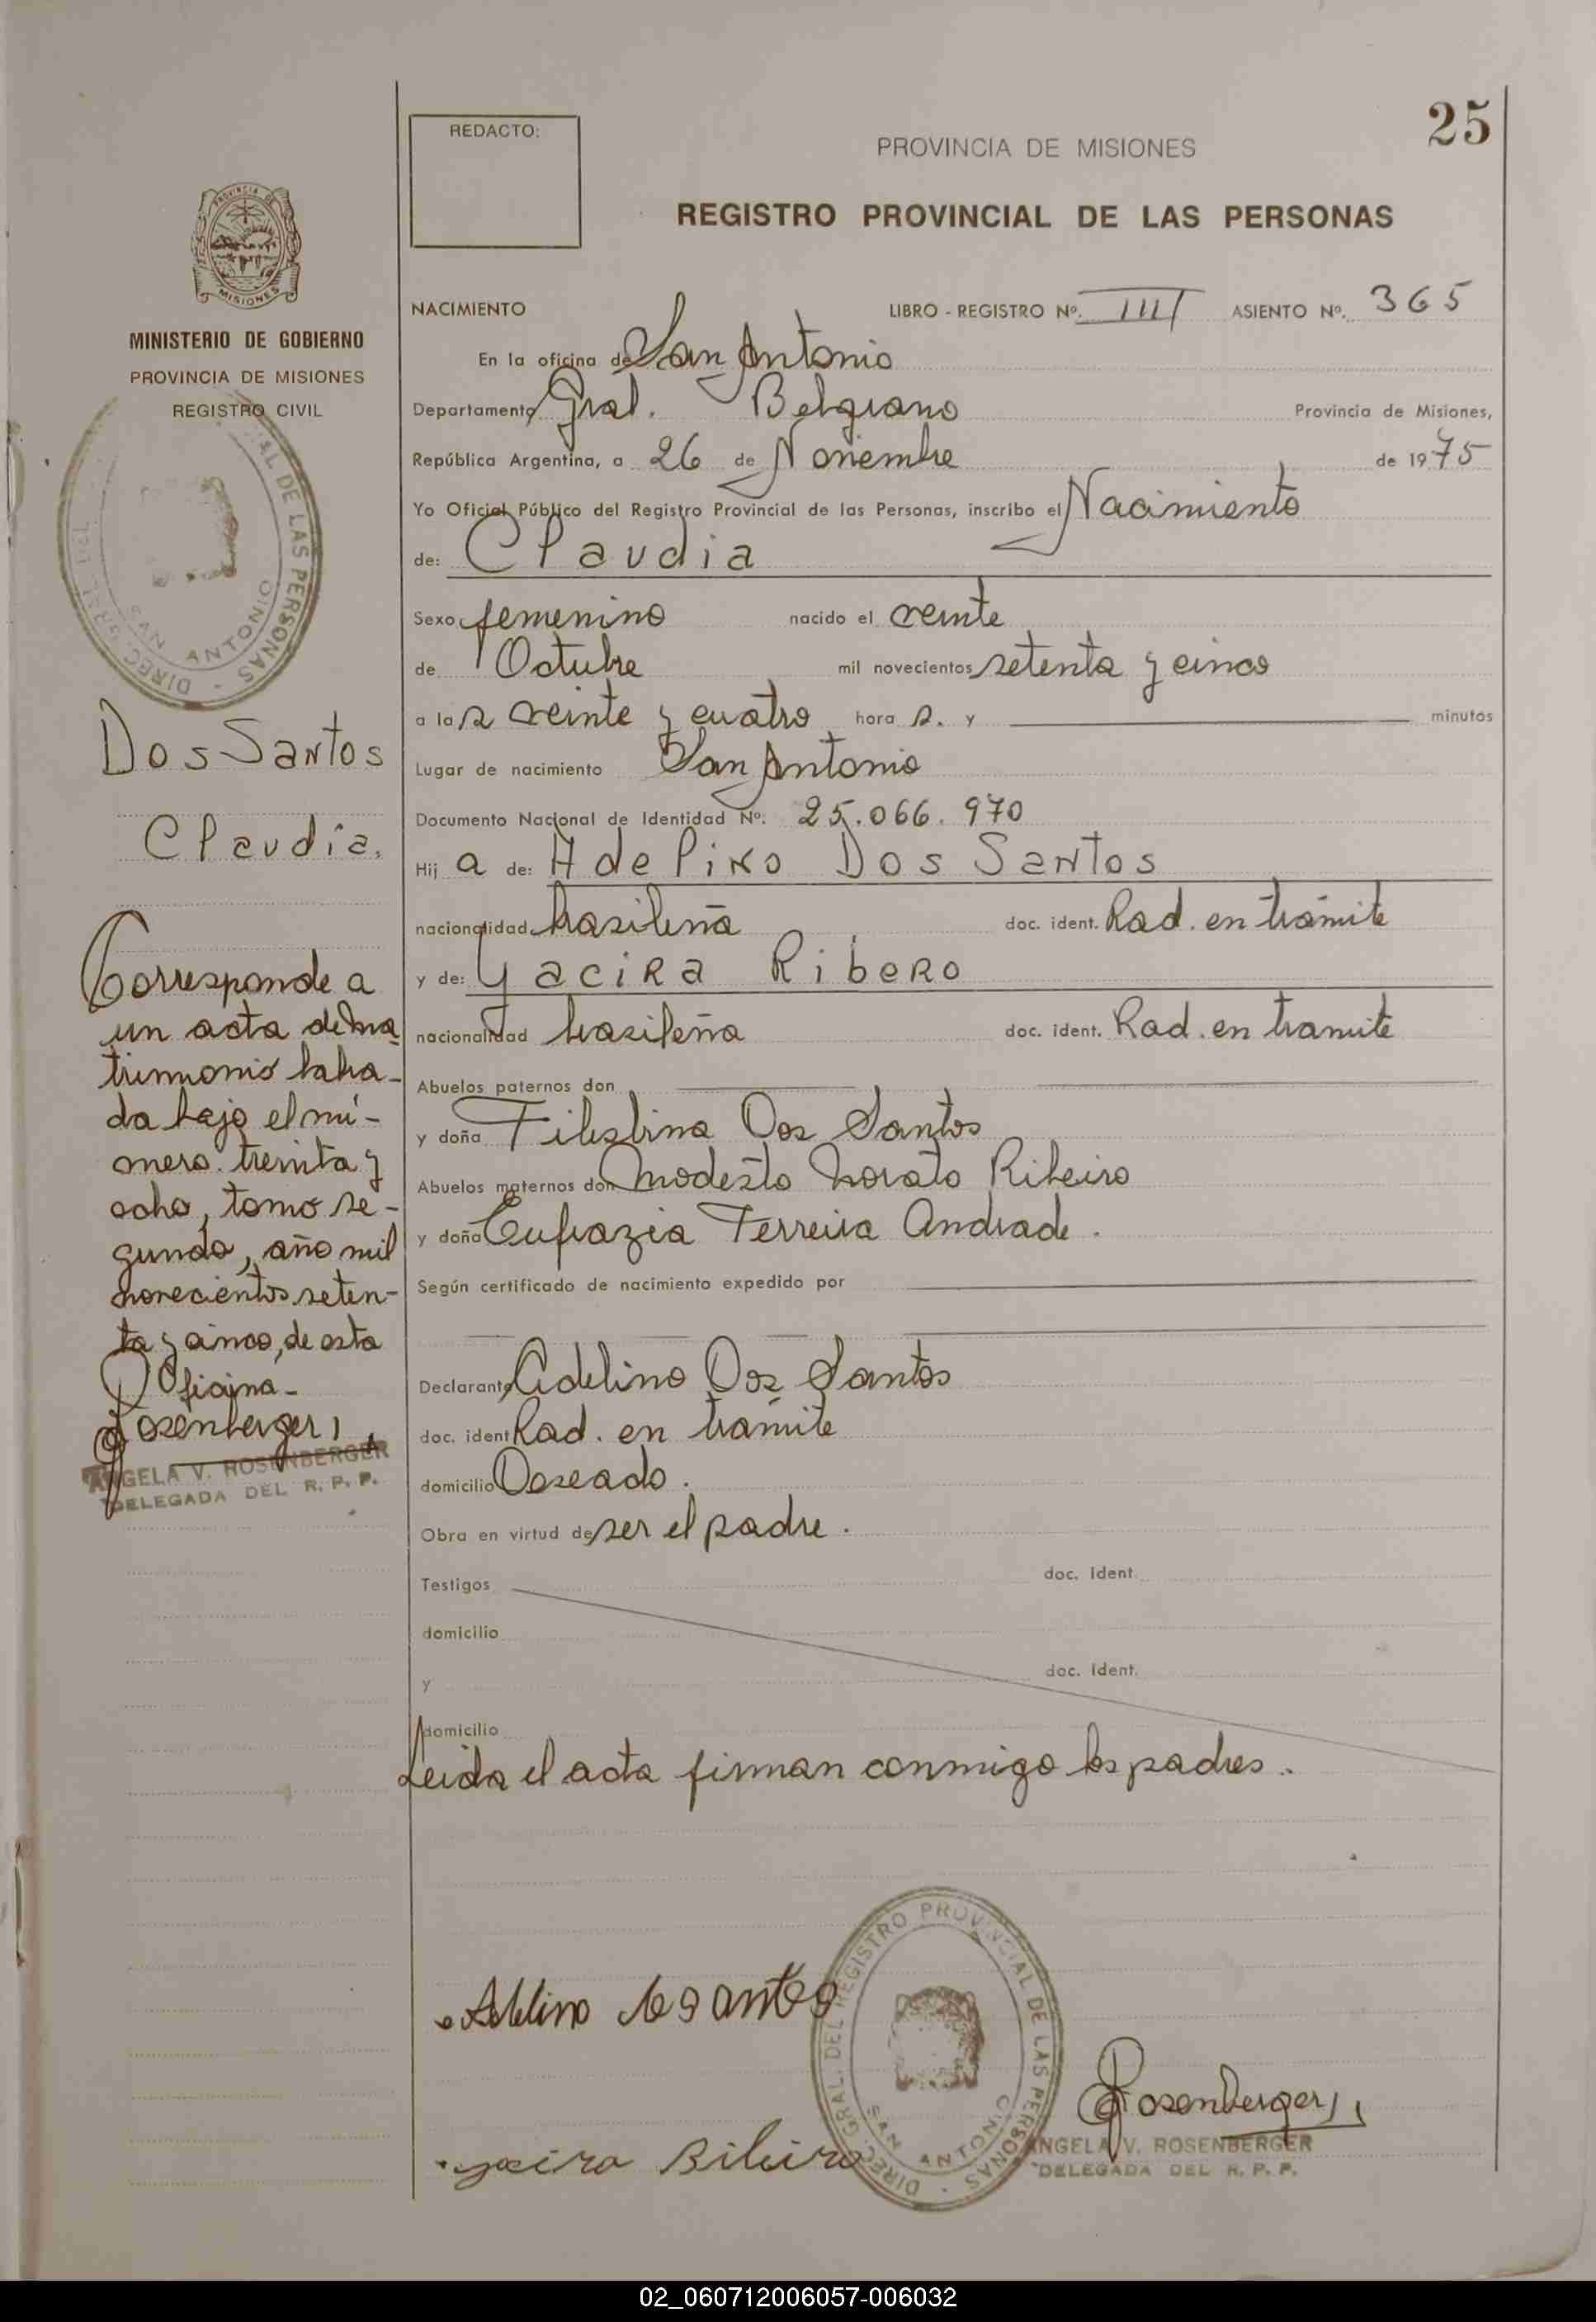 25
REDACTO:
PROVINCIA DE MISIONES
REGISTRO PROVINCIAL DE LAS PERSONAS
PROVINCIA DE
MISIONES
MINISTERIO DE GOBIERNO
PROVINCIA DE MISIONES
REGISTRO CIVIL
DIREC. GRAL. DEL AL DE LAS PERSONAS
SAN ANTONIO
Dos Santos
Claudia.
Corresponde a
un acta de ma
trimonio laba-
da bajo el nú-
mero treinta y
ocho, tomo se-
gundo, año mil
novecientos seten-
ta y cinco, de esta
Oficina-
Rosenberger
ANGELA V. ROSENBERGER
DELEGADA DEL R. P. P.
NACIMIENTO LIBRO - REGISTRO Nº. III ASIENTO Nº. 365
En la oficina de San Antonio
Departamento Gral. Belgrano Provincia de Misiones,
República Argentina, a 26 de Noviembre de 1975
Yo Oficial Público del Registro Provincial de las Personas, inscribo el Nacimiento
de: Claudia
Sexo femenino nacido el veinte
de Octubre mil novecientos setenta y cinco
a las veinte y cuatro hora s. y minutos
Lugar de nacimiento San Antonio
Documento Nacional de Identidad Nº: 25.066.970
Hij a de: Adelino Dos Santos
nacionalidad brasileña doc. ident. Rad. en trámite
y de: Yacira Ribero
nacionalidad brasileña doc. ident. Rad. en tramite
Abuelos paternos don
y doña Dos Santos
Abuelos maternos don Modesto Ribeiro
y doña Eufrazia Ferreira Andrade.
Según certificado de nacimiento expedido por
Declarante Adelino Dos Santos
doc. ident Rad. en trámite
domicilio Deseado.
Obra en virtud de ser el padre.
Testigos doc. Ident.
domicilio
y doc. Ident.
domicilio
Leida el acta firman conmigo los padres.
DIREC. GRAL. DEL REGISTRO PROVINCIAL DE LAS PERSONAS
SAN ANTONIO
Rosenberger
ANGELA V. ROSENBERGER
DELEGADA DEL R. P. P.
02_060712006057-006032